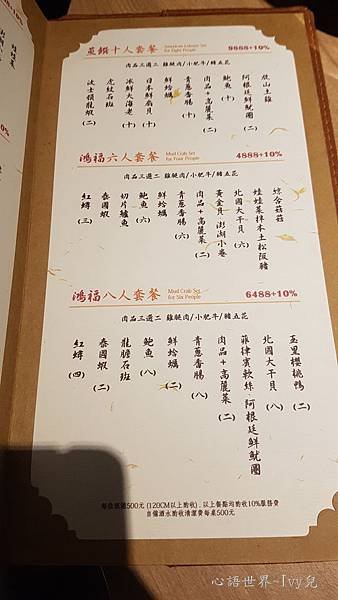 蒸鍋十人套餐 American Lobster Set for Eight People 9888+10%
肉品三選二 雞腿肉/小肥牛/豬五花
放山土雞
阿根廷鮮魷圈(二)
鮑魚(十)
肉品+高麗菜(二)
青蔥香腸(十)
鮮蛤蠣
日本鮮扇貝(十)
冰鮮大海老(十)
虎紋石斑
波士頓龍蝦(二)
鴻福六人套餐 Mud Crab Set for Four People 4888+10%
肉品三選二 雞腿肉/小肥牛/豬五花
綜合菇菇
娃娃菜拌本土松阪豬
北國大干貝(六)
黃金貝·澎湖小卷
肉品+高麗菜(二)
青蔥香腸(六)
鮮蛤蠣
鮑魚(六)
切片鱸魚
泰國蝦
紅蟳(三)
鴻福八人套餐 Mud Crab Set for Six People 6488+10%
肉品三選二 雞腿肉/小肥牛/豬五花
玉里櫻桃鴨(二)
北國大干貝(八)
菲律賓軟絲·阿根廷鮮魷圈
肉品+高麗菜(二)
青蔥香腸(八)
鮮蛤蠣(二)
鮑魚(八)
龍膽石斑
泰國蝦(二)
紅蟳(四)
500元 (120CM以上酌收),以上餐點均酌收10%服務費
自備酒水酌收清潔費每桌500元
心語世界~Ivy兒